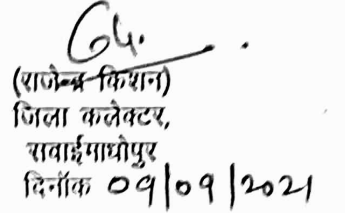 (राजेन्द्र किशन)
जिला कलेक्टर,
सवाईमाधोपुर
दिनॉक 09/09/2021